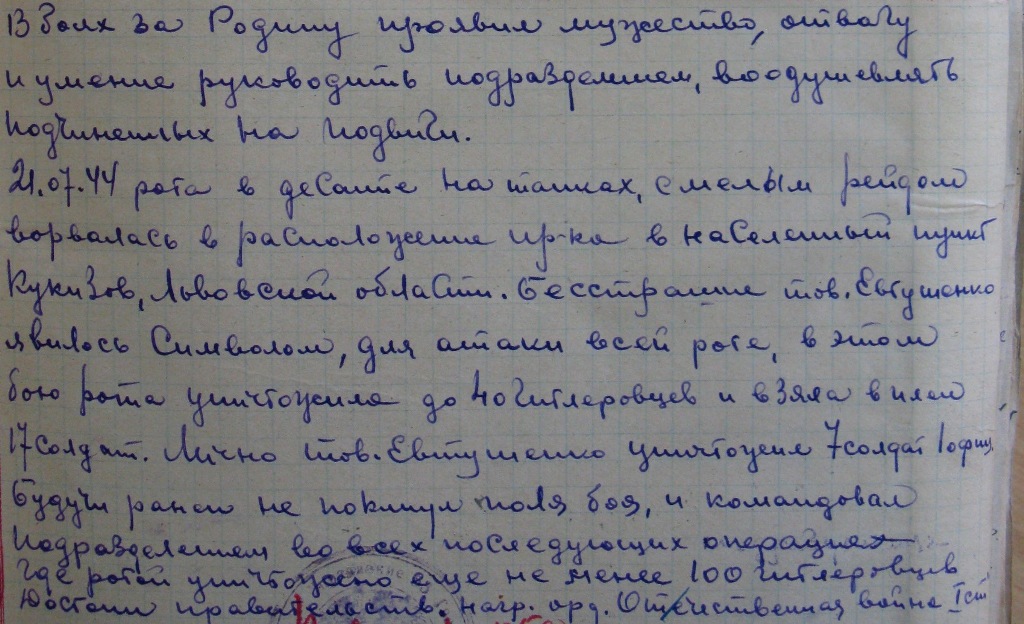 В боях за Родину проявил мужество, отвагу
и умение руководить подразделением, воодушевлять
подчиненных на подвиги.
21.07.44 рота в десанте на танках, смелым рейдом
ворвалась в расположение пр-ка в населенный пункт
Кукизов, Львовской области. Бесстрашие тов. Евтушенко
явилось Символом, для атаки всей роте, в этом
бою рота уничтожила до 40 гитлеровцев и взяла в плен
17 солдат. Лично тов. Евтушенко уничтожил 7 солдат 1 офиц.
Будучи ранен не покинул поля боя, и командовал
подразделением во всех последующих операциях
где ротой уничтожено еще не менее 100 гитлеровцев
Достоин правительств. нагр. орд. Отечественная война I ст